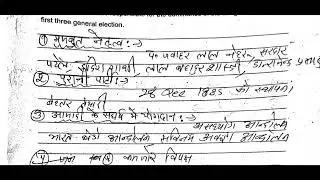 first three general election.
① मजबूत नेतृत्व :-
पं० जवाहर लाल नेहरू, सरदार
पटेल, इंदिरा गांधी, लाल बहादुर शास्त्री,
② पुरानी पार्टी :-
28 दिसंबर 1885 को स्थापना
③ आजादी के संघर्ष में योगदान :-
असहयोग आन्दोलन
भारत छोडो आन्दोलन सविनय अवज्ञा आन्दोलन
कमजोर विपक्ष